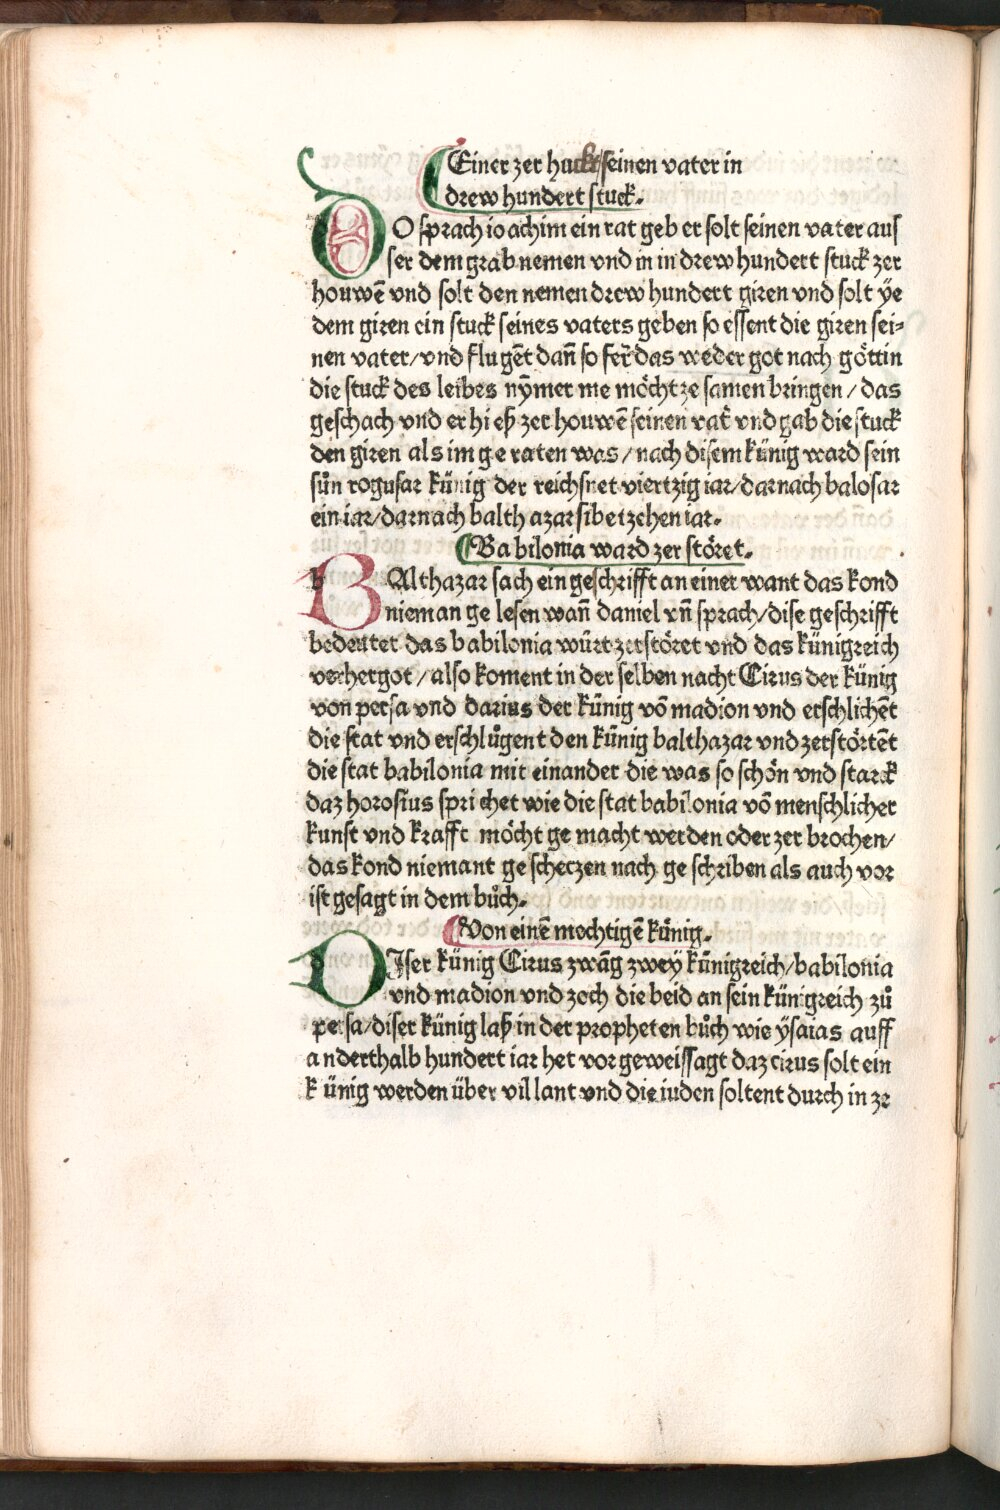 Einer zer huckt seinen vater in
drew hundert stuck.
DO sprach ioachim ein rat geb er solt seinen vater aus
ser dem grab nemen vnd in in drew hundert stuck zer
houwē vnd solt den nemen drew hundert giren vnd solt ÿe
dem giren ein stuck seines vaters geben so essent die giren sei-
nen vater/vnd flugēt dañ so ferr̄ das weder got nach göttin
die stuck des leibes nȳmer me möcht ze samen bringen/das
geschach vnd er hieß zer houwē seinen vat̄ vnd gab die stuck
den giren als im ge raten was/nach disem künig ward sein
sůn rogusar künig der reichsnet viertzig iar/darnach balosar
ein iar/darnach balthazar sibetzehen iar.
Babilonia ward zerstöret.
BAlthazar sach ein geschrifft an einer want das kond
nieman ge lesen wañ daniel vñ sprach/dise geschrifft
bedeutet das babilonia würt zerstöret vnd das künigreich
verhergot/also koment in der selben nacht Cirus der künig
von persa vnd darius der künig võ madion vnd erschlichēt
die stat vnd erschlůgent den künig balthazar vnd zerstörtēt
die stat babilonia mit einander die was so schön vnd starck
daz horosius sprichet wie die stat babilonia võ menschlicher
kunst vnd krafft möcht ge macht werden oder zer brochen/
das kond niemant ge scheczen nach ge schriben als auch vor
ist gesagt in dem bůch.
Von einē mechtigē künig.
DIser künig Cirus zwāg zwey künigreich/babilonia
vnd madion vnd zoch die beid an sein künigreich zů
persa/diser künig laß in der propheten bůch wie ysaias auff
anderthalb hundert iar het vor geweissagt daz cirus solt ein
künig werden über vil lant vnd die iuden soltent durch in zr